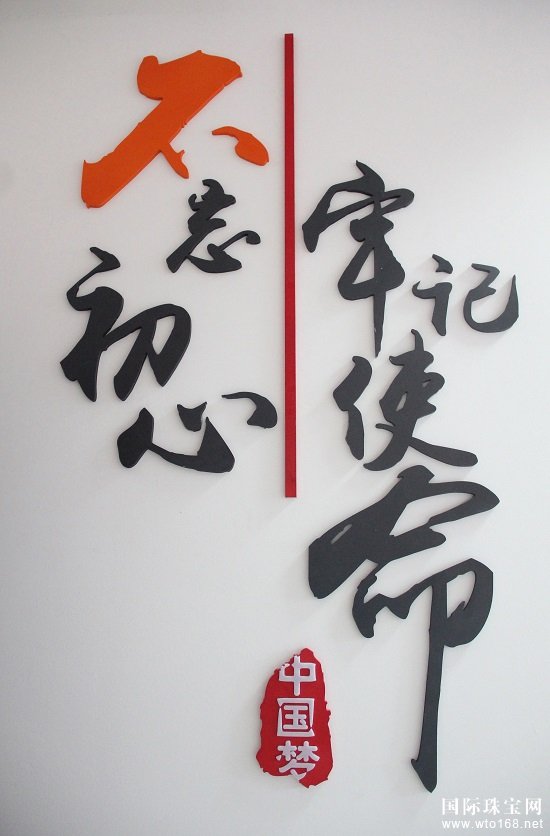 不忘初心
牢记使命
中国梦
国际珠宝网
www.wto168.net